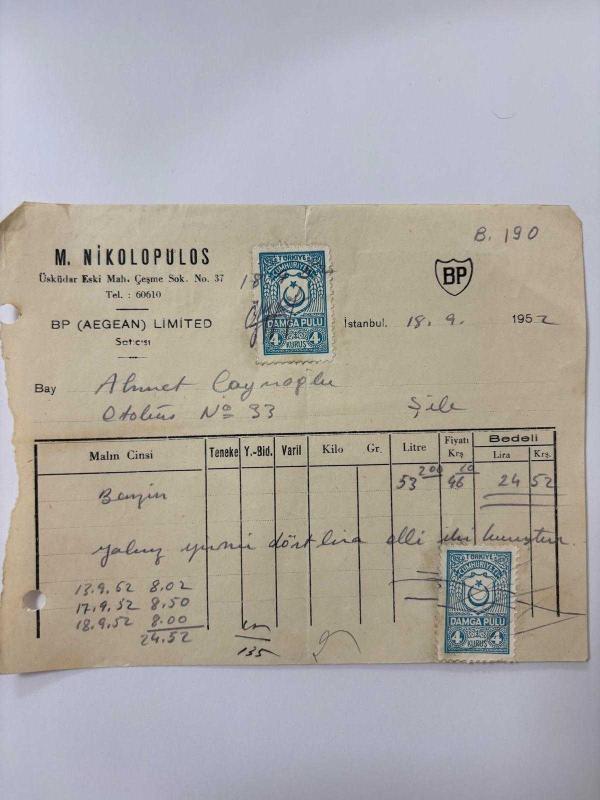 B. 190
M. NİKOLOPULOS
Üsküdar Eski Mah. Çeşme Sok. No. 37
Tel. : 60610
BP (AEGEAN) LIMITED
Satıcısı
TÜRKİYE
CUMHURİYETİ
DAMGA PULU
4 KURUŞ 4
BP
İstanbul. 18. 9. 1952
Bay Ahmet Çaynoğlu
Otobüs No 33 Şile
Malın Cinsi Teneke Y.-Bid. Varil Kilo Gr. Litre Fiyatı Krş Bedeli Lira Krş.
Benzin 53 200 46 10 24 52
yalnız yirmi dört lira elli iki kuruştur.
13.9.52 8.02
17.9.52 8.50
18.9.52 8.00
24.52
135
TÜRKİYE
CUMHURİYETİ
DAMGA PULU
4 KURUŞ 4